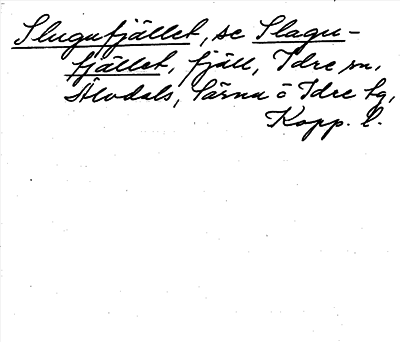 Slugufjället, se Slagu-
fjället, fjäll, Idre sn,
Älvdals, Särna o Idre tg,
Kopp. l.